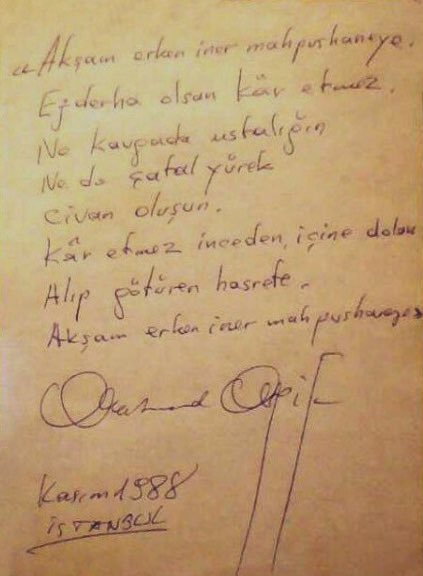 "Akşam erken iner mahpushaneye.
Ejderha olsan kâr etmez.
Ne kavgada ustalığın
Ne de çatal yürek
civan oluşun.
Kâr etmez inceden, içine dolan
Alıp götüren hasrete.
Akşam erken iner mahpushaneye"
Kasım 1988
İSTANBUL